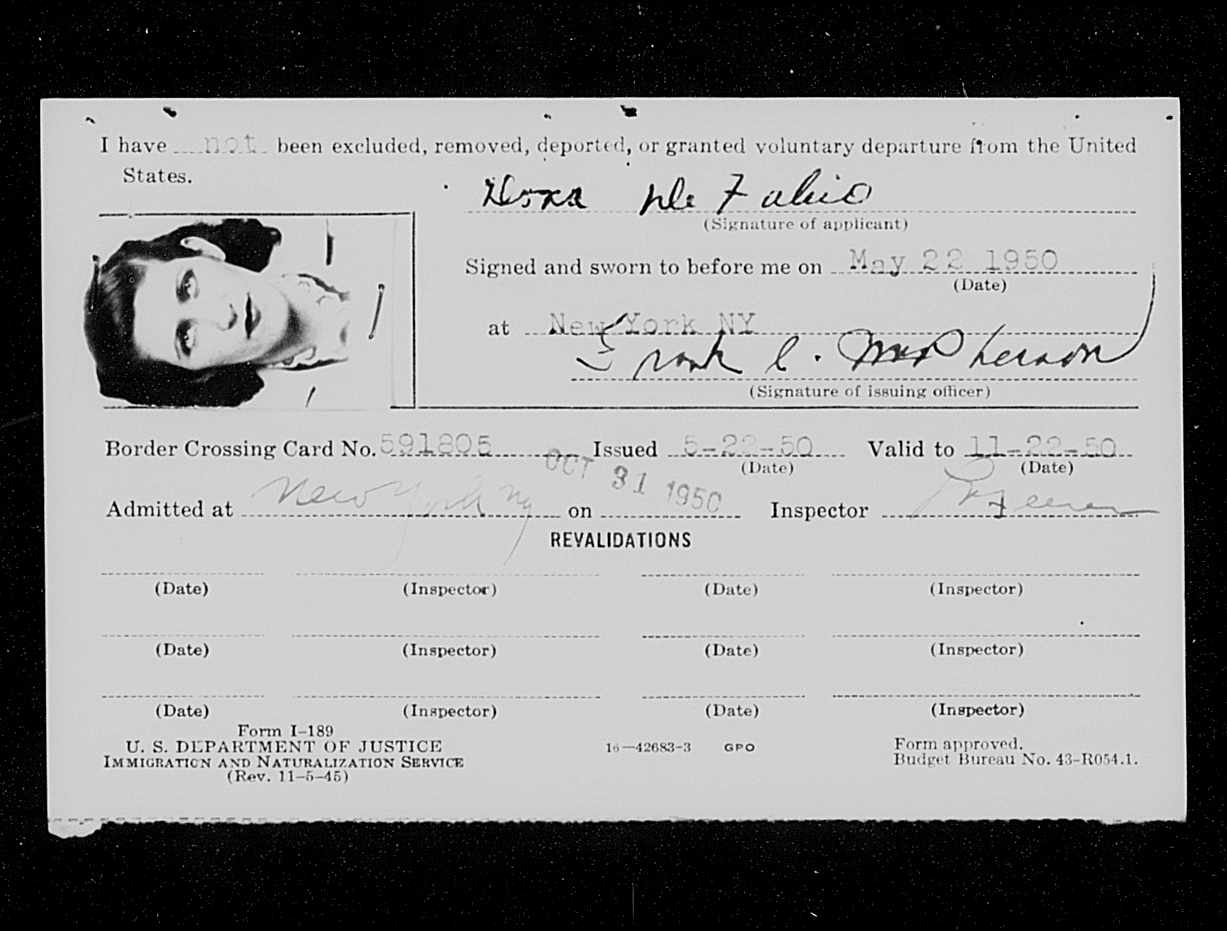 I have not been excluded, removed, deported, or granted voluntary departure from the United
States.
De Fabio
(Signature of applicant)
Signed and sworn to before me on May 22 1950
(Date)
at New York NY
Frank C. MacPherson
(Signature of issuing officer)
Border Crossing Card No. 591805 Issued 5-22-50 Valid to 11-22-50
(Date) (Date)
Admitted at New York NY on OCT 31 1950 Inspector
REVALIDATIONS
(Date) (Inspector) (Date) (Inspector)
(Date) (Inspector) (Date) (Inspector)
(Date) (Inspector) (Date) (Inspector)
Form I-189
U. S. DEPARTMENT OF JUSTICE
IMMIGRATION AND NATURALIZATION SERVICE
(Rev. 11-5-45)
16—42683-3 GPO
Form approved.
Budget Bureau No. 43-R054.1.